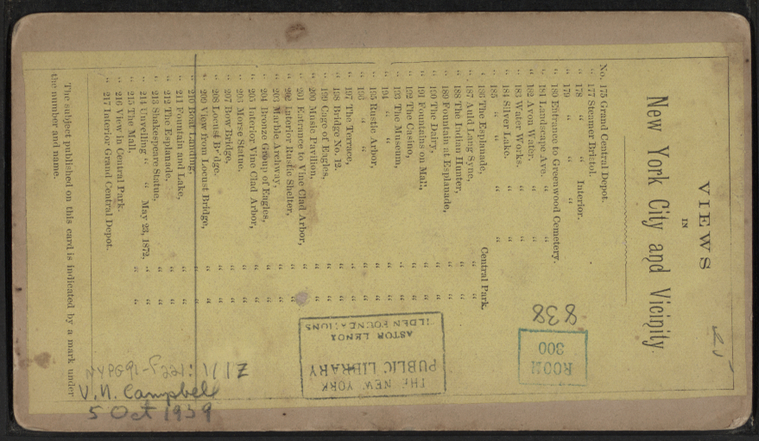 VIEWS
IN
New York City and Vicinity.
No. 175 Grand Central Depot.
" 177 Steamer Bristol.
" 178 " " Interior.
" 179 " " "
" 180 Entrance to Greenwood Cemetery.
" 181 Landscape Ave. " "
" 182 Avon Water, " "
" 183 Water Works, " "
" 184 Silver Lake. " "
" 185 " " "
" 186 The Esplanade, Central Park.
" 187 Auld Lang Syne, " "
" 188 The Indian Hunter, " "
" 189 Fountain at Esplanade, " "
" 190 The Dairy, " "
" 191 Fountain on Mall, " "
" 192 The Casino, " "
" 193 The Museum, " "
" 194 " " " "
" 195 Rustic Arbor, " "
" 196 " " " "
" 197 The Terrace, " "
" 198 Bridge No. 12, " "
" 199 Cage of Eagles, " "
" 200 Music Pavilion, " "
" 201 Entrance to Vine Clad Arbor, " "
" 202 Interior Rustic Shelter, " "
" 203 Marble Archway, " "
" 204 Bronze Group of Eagles, " "
" 205 Interior Vine Clad Arbor, " "
" 206 Morse Statue, " "
" 207 Bow Bridge, " "
" 208 Locust Bridge, " "
" 209 View from Locust Bridge, " "
" 210 Boat Landing, " "
" 211 Fountain and Lake, " "
" 212 The Esplanade, " "
" 213 Shakespeare Statue, " "
" 214 Unveiling " " May 23, 1872. " "
" 215 The Mall, " "
" 216 View in Central Park.
" 217 Interior Grand Central Depot.
The subject published on this card is indicated by a mark under
the number and name.
838
ROOM
300
THE NEW YORK
PUBLIC LIBRARY
ASTOR LENOX
TILDEN FOUNDATIONS
V. N. Campbell
5 Oct 1939